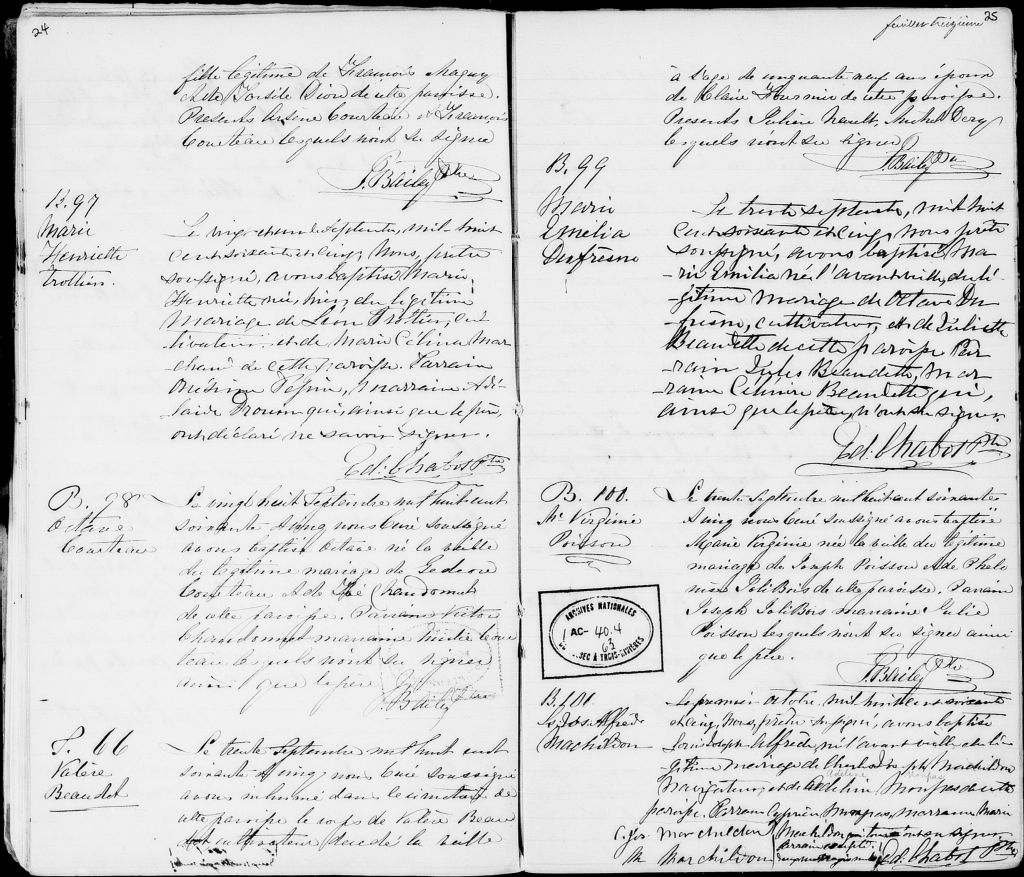 24
fille légitime de François Magny
et de Forsile Dion de cette paroisse.
Présents Arsène Courteau et François
Courteau lesquels n'ont su signer
J. Bailey Ptre
B. 97
Marie
Henriette
Trottier.
Le vingt-neuf Septembre, mil huit
cent soixante et cinq, Nous, prêtre
soussigné, avons baptisé Marie,
Henriette née, hier, du légitime
Mariage de Léon Trottier, cul-
tivateur, et de Marie Celina Mar-
chand de cette paroisse. Parrain
Onésime Pepin, Marraine Adé-
laide Drouin qui, ainsi que le père,
ont déclaré ne savoir signer.
Ed: Chabot Ptre
B. 98
Octave
Courteau
Le vingt huit Septembre mil huit cent
soixante & cinq nous Curé soussigné
avons baptisé Octave né la veille
du légitime mariage de Gédéon
Courteau & de Chandonnet
de cette paroisse. Parrain Victor
Chandonnet marraine Cour
teau lesquels n'ont su signer
ainsi que le père
J. Bailey Ptre
S. 66
Valère
Beaudet
Le trente Septembre mil huit cent
soixante & cinq, nous Curé soussigné
avons inhumé dans le cimetière de
cette paroisse le corps de Valère Beau
det cultivateur décédé la veille
25
feuillet treizième
à l'age de cinquante neuf ans époux
de Claire de cette paroisse.
Présents Julien Neault, Michel Dery
lesquels n'ont su signer
J. Bailey Ptre
B. 99
Marie
Emélia
Dufresne
Le trente septembre, mil huit
cent soixante et cinq, Nous prêtre
soussigné, avons baptisé Ma-
rie Emilia née l'avant veille, du lé-
gitime mariage de Octave Du-
fresne, cultivateur, et de Juliette
Beaudette de cette paroisse Par-
rain Jules Beaudette, Mar-
raine Célinire Beaudette qui,
ainsi que le père, n'ont su signer.
Ed: Chabot Ptre
B. 100.
Me Virginie
Poisson
Le trente Septembre mil huit cent soixante
& cinq nous Curé soussigné avons baptisé
Marie Virginie née la veille du légitime
mariage de Joseph Poisson & de Phelo
mène JoliBois de cette paroisse. Parrain
Joseph JoliBois marraine Julie
Poisson lesquels n'ont su signer ainsi
que le père.
J. Bailey Ptre
ARCHIVES NATIONALES
AC- 40.4
63
QUÉBEC À TROIS-RIVIÈRES
B. 101.
Ls Jos. Alfred
Machildon
Le premier Octobre, mil huit cent soixante
et cinq, Nous, prêtre soussigné, avons baptisé
Louis Joseph Alfred, né l'avant veille du lé-
gitime mariage de Charles Joseph Machildon
Adeline
Navigateur, et de Adeline Mongras de cette
paroisse, Parrain Cyprien Mongras, Marraine Marie
C. Jos. Marchildon
M Marchildon
Machildon
Ed: Chabot Ptre